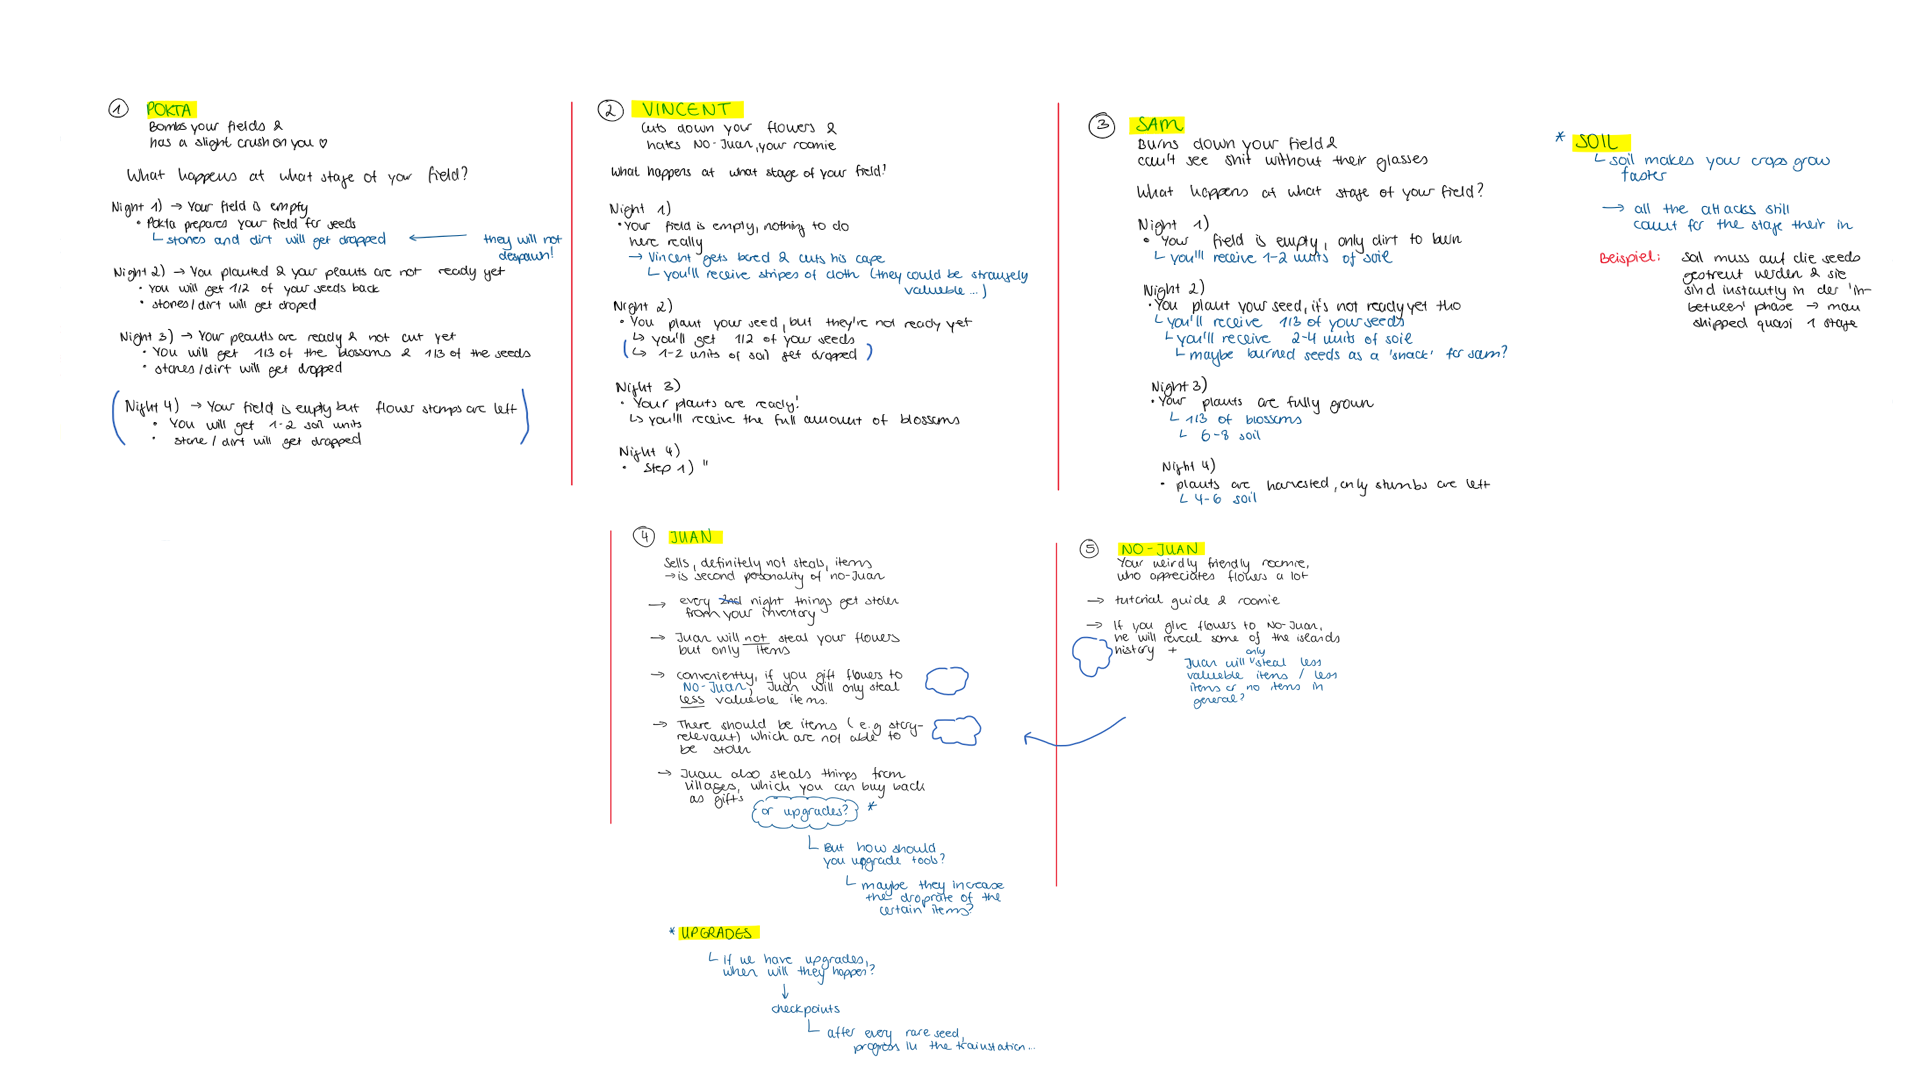 1 POKTA
Bombs your fields &
has a slight crush on you ♡
What happens at what stage of your field?
Night 1) → Your field is empty
• Pokta prepares your field for seeds
└ stones and dirt will get dropped ← they will not
despawn!
Night 2) → You planted & your plants are not ready yet
• You will get 1/2 of your seeds back
• stones/dirt will get droped
Night 3) → Your plants are ready & not cut yet
• You will get 1/3 of the blossoms & 1/3 of the seeds
• stones/dirt will get dropped
(Night 4) → Your field is empty but flower stomps are left
• You will get 1-2 soil units
• stone/dirt will get dropped)
2 VINCENT
Cuts down your flowers &
hates NO-Juan, your roomie
What happens at what stage of your field?
Night 1)
• Your field is empty, nothing to do
here really
→ Vincent gets bored & cuts his cape
└ you'll receive stripes of cloth (they could be strangely
valuable...)
Night 2)
• You plant your seed, but they're not ready yet
↳ you'll get 1/2 of your seeds
(↳ 1-2 units of soil get dropped)
Night 3)
• Your plants are ready!
↳ you'll receive the full amount of blossoms
Night 4)
• Step 1) "
3 SAM
Burns down your field &
can't see shit without their glasses
What happens at what stage of your field?
Night 1)
• Your field is empty, only dirt to burn
└ you'll receive 1-2 units of soil
Night 2)
• You plant your seed, it's not ready yet tho
└ you'll receive 1/3 of your seeds
└ you'll receive 2-4 units of soil
└ maybe burned seeds as a 'snack' for sam?
Night 3)
• Your plants are fully grown
└ 1/3 of blossoms
└ 6-8 soil
Night 4)
• plants are harvested, only stumbs are left
└ 4-6 soil
* SOIL
└ soil makes your crops grow
faster
→ all the attacks still
count for the stage their in
Beispiel: Soil muss auf die seeds
gestreut werden & sie
sind instantly in der 'in-
between' phase → man
skipped quasi 1 stage
4 JUAN
Sells, definitely not steals, items
→ is second personality of no-Juan
→ every 2nd night things get stolen
from your inventory
→ Juan will not steal your flowers
but only items
→ conveniently, if you gift flowers to
NO-Juan, Juan will only steal
less valuable items.
→ There should be items (e.g story-
relevant) which are not able to
be stolen
→ Juan also steals things from
villages, which you can buy back
as gifts
or upgrades? *
└ But how should
you upgrade tools?
└ maybe they increase
the droprate of the
certain items?
* UPGRADES
└ If we have upgrades,
when will they happen?
↓
checkpoints
└ after every rare seed,
progress in the trainstation...
5 NO-JUAN
Your weirdly friendly roomie,
who appreciates flowers a lot
→ tutorial guide & roomie
→ If you give flowers to No-Juan,
he will reveal some of the islands
history +
only
Juan will steal less
valuable items / less
items or no items in
general?